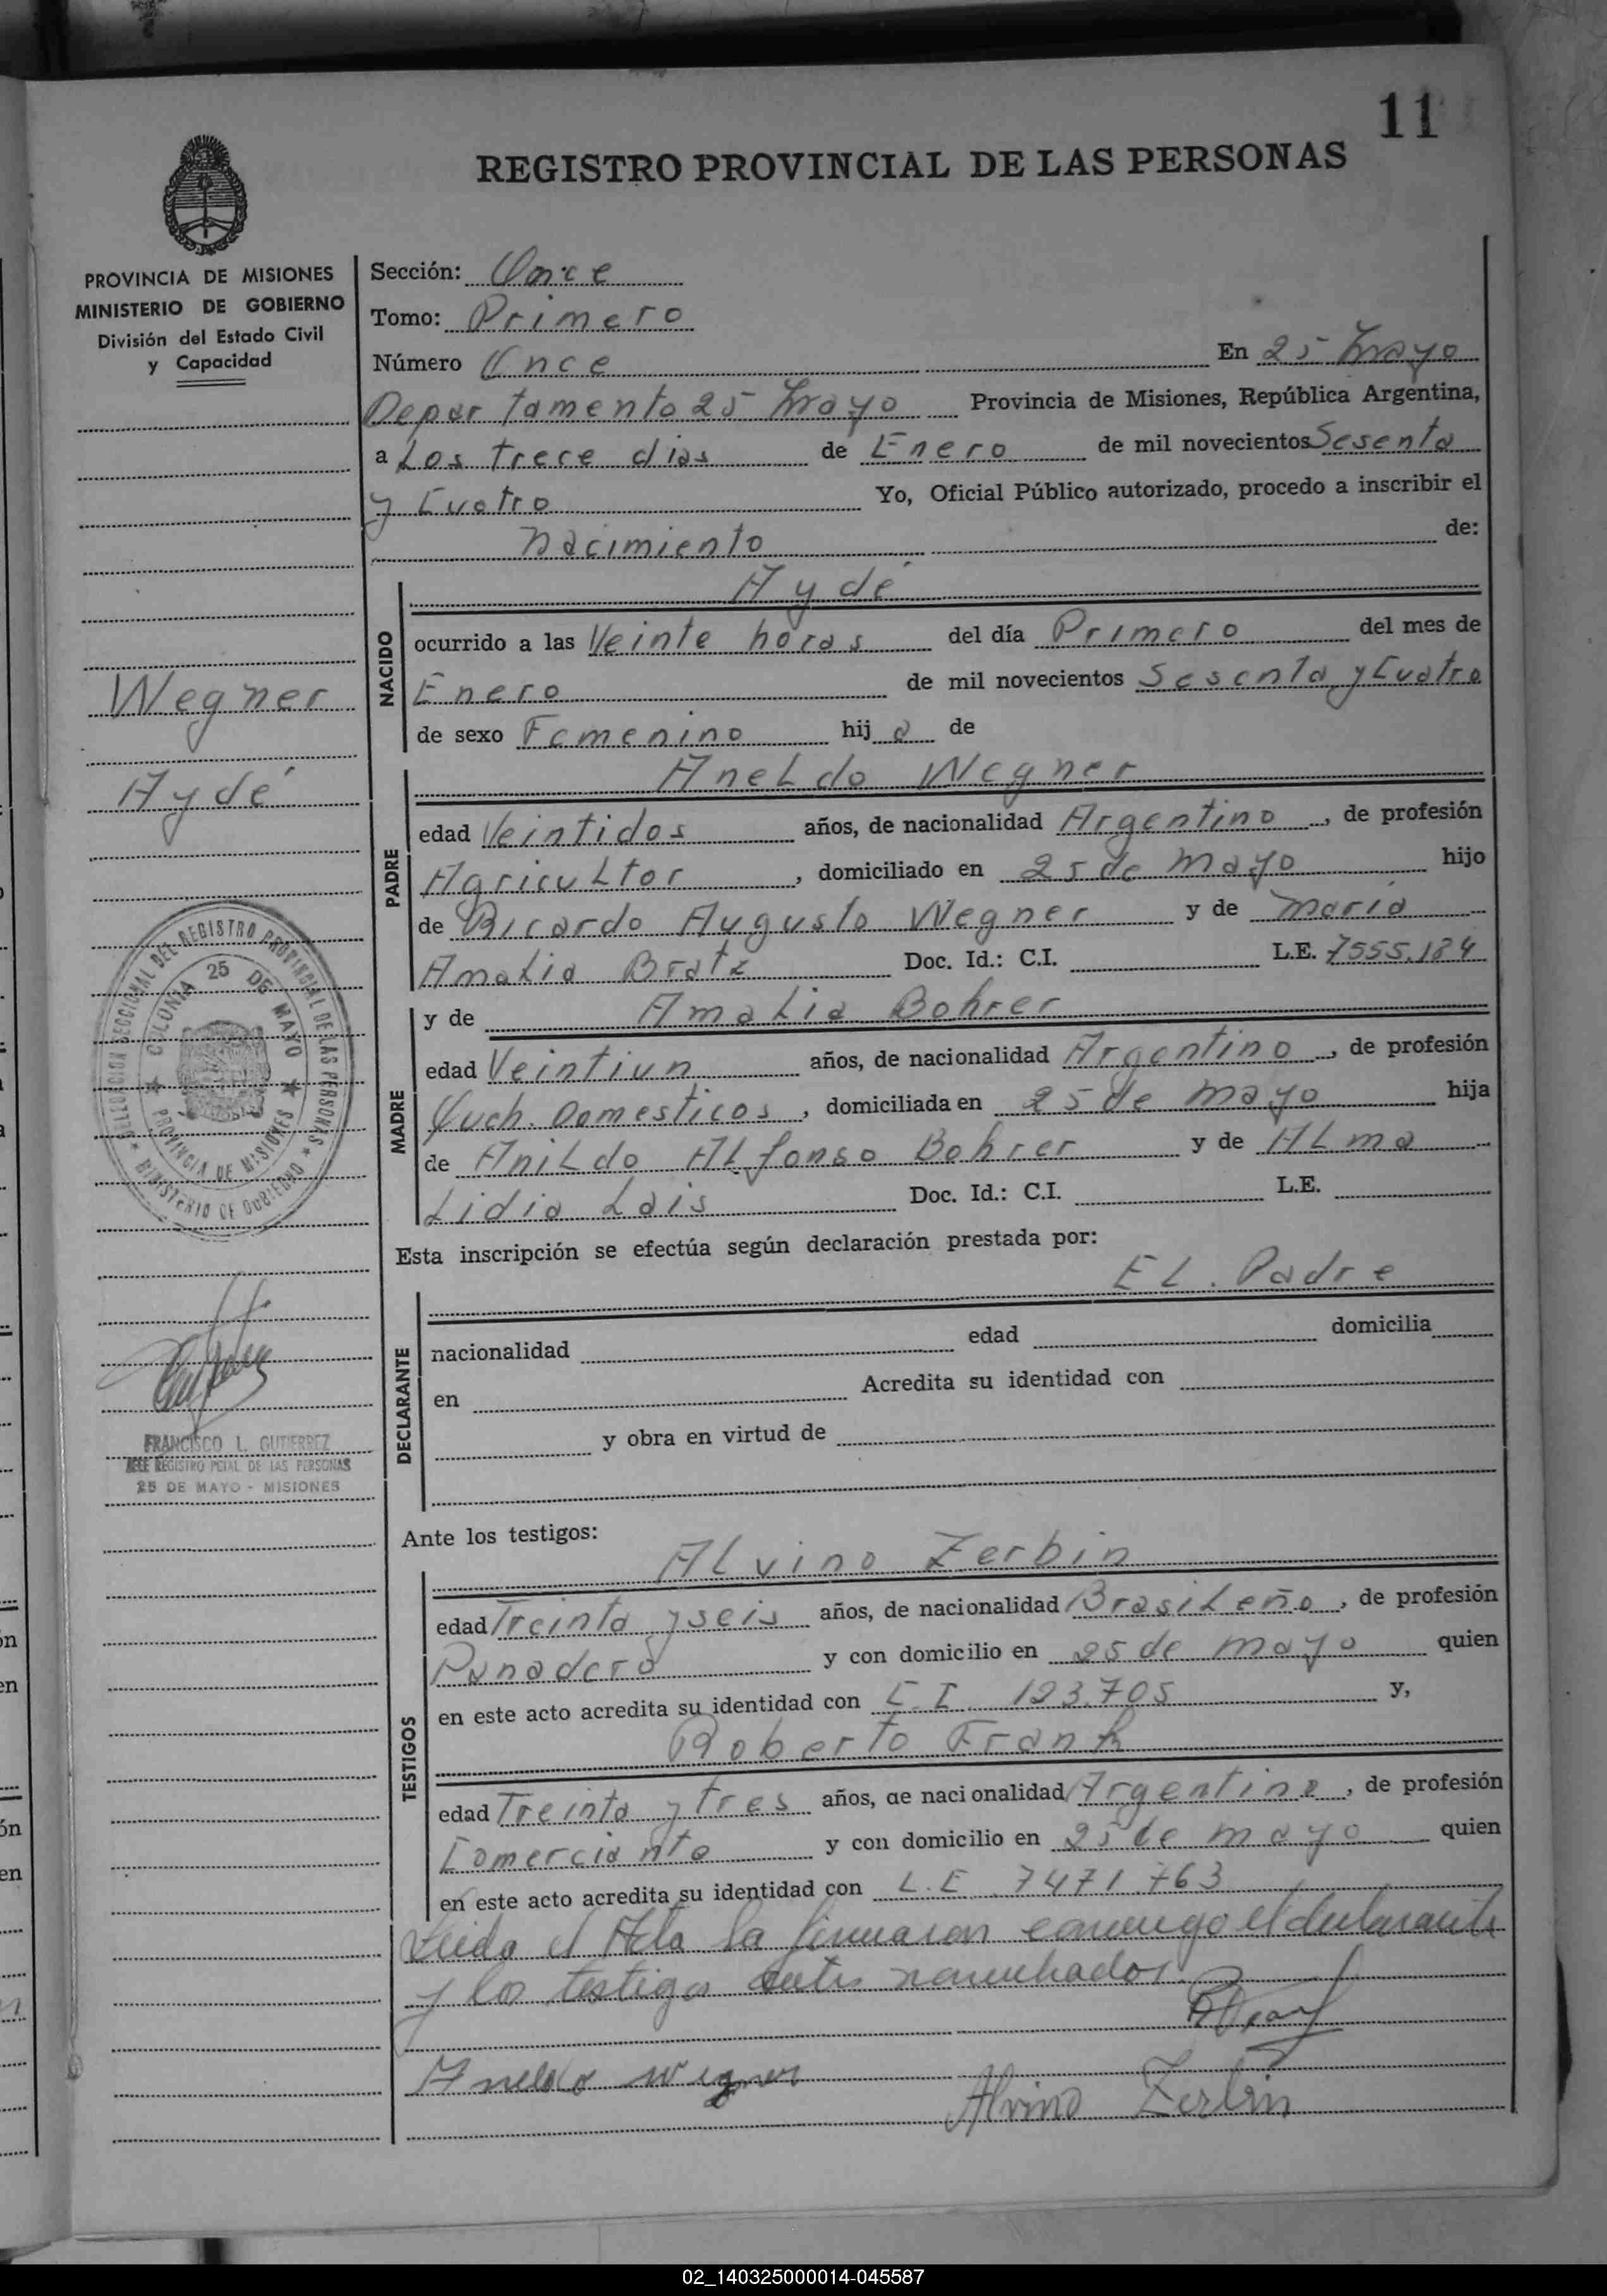 11
REGISTRO PROVINCIAL DE LAS PERSONAS
PROVINCIA DE MISIONES
MINISTERIO DE GOBIERNO
División del Estado Civil
y Capacidad
Wegner
Aydé
DELEGACION SECCIONAL DEL REGISTRO PROVINCIAL DE LAS PERSONAS
MINISTERIO DE GOBIERNO
COLONIA 25 DE MAYO
PROVINCIA DE MISIONES
FRANCISCO L. GUTIERREZ
JEFE REGISTRO PCIAL. DE LAS PERSONAS
25 DE MAYO - MISIONES
Sección: Once
Tomo: Primero
Número Once En 25 Mayo
Departamento 25 Mayo Provincia de Misiones, República Argentina,
a Los trece dias de Enero de mil novecientos Sesenta
y Cuatro Yo, Oficial Público autorizado, procedo a inscribir el
nacimiento de:
NACIDO
Aydé
ocurrido a las Veinte horas del día Primero del mes de
Enero de mil novecientos Sesenta y Cuatro
de sexo Femenino hij a de
PADRE
Aneldo Wegner
edad Veintidos años, de nacionalidad Argentino, de profesión
Agricultor, domiciliado en 25 de Mayo hijo
de Ricardo Augusto Wegner y de Maria
Amalia Bratz Doc. Id.: C.I. L.E. 7555.184
MADRE
y de Amalia Bohrer
edad Veintiun años, de nacionalidad Argentino, de profesión
Quch. Domesticos, domiciliada en 25 de Mayo hija
de Anildo Alfonso Bohrer y de Alma
Lidia Lais Doc. Id.: C.I. L.E.
Esta inscripción se efectúa según declaración prestada por:
DECLARANTE
El. Padre
nacionalidad edad domicilia
en Acredita su identidad con
y obra en virtud de
Ante los testigos:
TESTIGOS
Alvino Zerbin
edad Treinta y seis años, de nacionalidad Brasileño, de profesión
Panadero y con domicilio en 25 de Mayo quien
en este acto acredita su identidad con C.I. 123.705 y,
Roberto Frank
edad Treinta y tres años, de nacionalidad Argentino, de profesión
Comerciante y con domicilio en 25 de Mayo quien
en este acto acredita su identidad con L.E. 7471.763
Leida el Acta la firmaron conmigo el declarante
y los testigos antes nombrados.
Aneldo Wegner
Alvino Zerbin
02_140325000014-045587